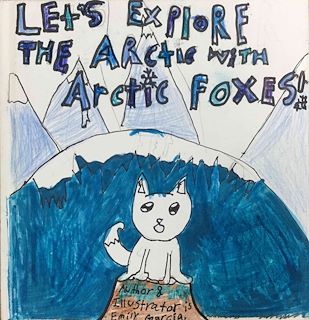 LEt's EXPLORE
THE ARctic with
Arctic FOXES!
Author &
Illustrator is
Emily Garcia.